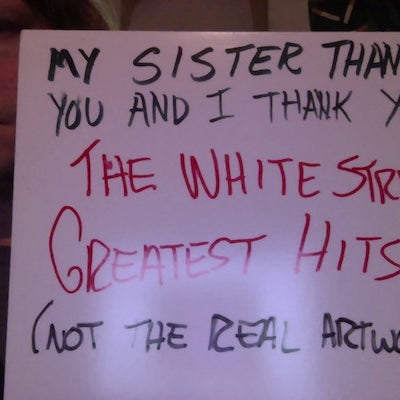 MY SISTER THAN
YOU AND I THANK Y
THE WHITE STR
GREATEST HITS
(NOT THE REAL ARTWO